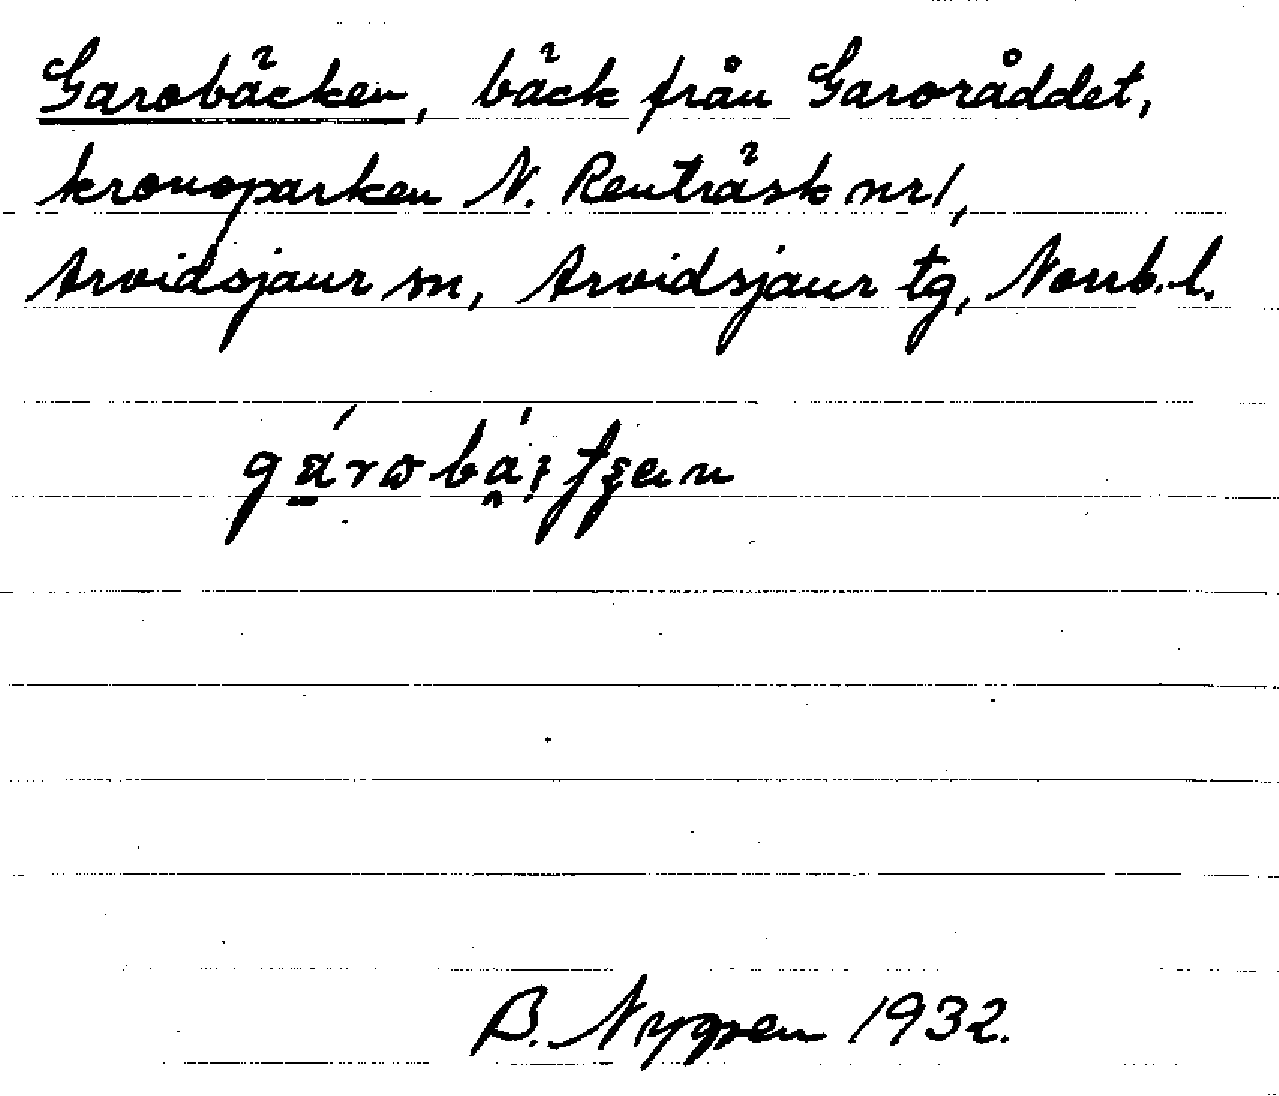 Garobäcken, bäck från Garoråddet,
kronoparken N. Renträsk nr 1,
Arvidsjaur sn, Arvidsjaur tg, Norrb. l.
B. Nygren 1932.